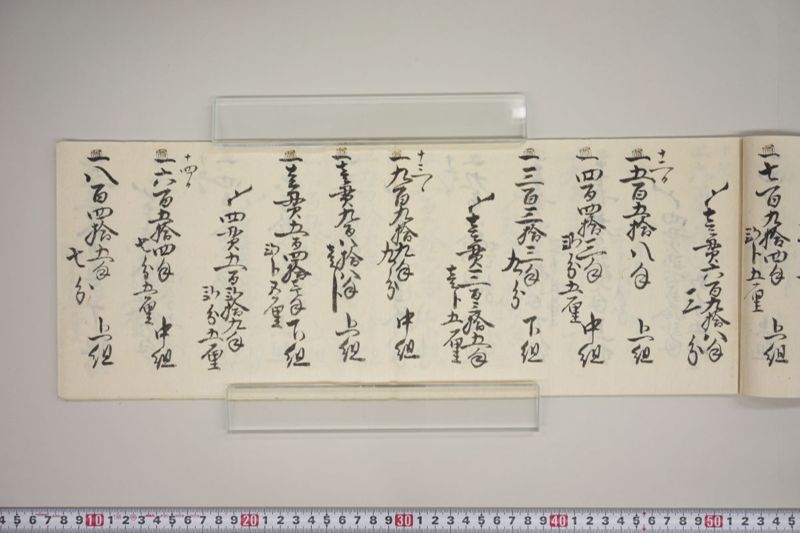 一七百九拾四匁 弐分五厘 上組
〆壱貫六百九拾八匁 三分
十二日
一五百五拾八匁 上組
一四百四拾三匁 弐分五厘 中組
一三百三拾三匁 九分 下組
〆壱貫三百三拾五匁 壱分五厘
十三日
一九百九拾九匁 九分 中組
一壱貫九百八拾八匁 壱分 上組
一壱貫五百四拾壱匁 弐分五厘 下組
〆四貫五百弐拾九匁 弐分五厘
十四日
一六百五拾四匁 七分五厘 中組
一八百四拾五匁 七分 上組
4 5 6 7 8 9 10 1 2 3 4 5 6 7 8 9 20 1 2 3 4 5 6 7 8 9 30 1 2 3 4 5 6 7 8 9 40 1 2 3 4 5 6 7 8 9 50 1 2 3 4 5